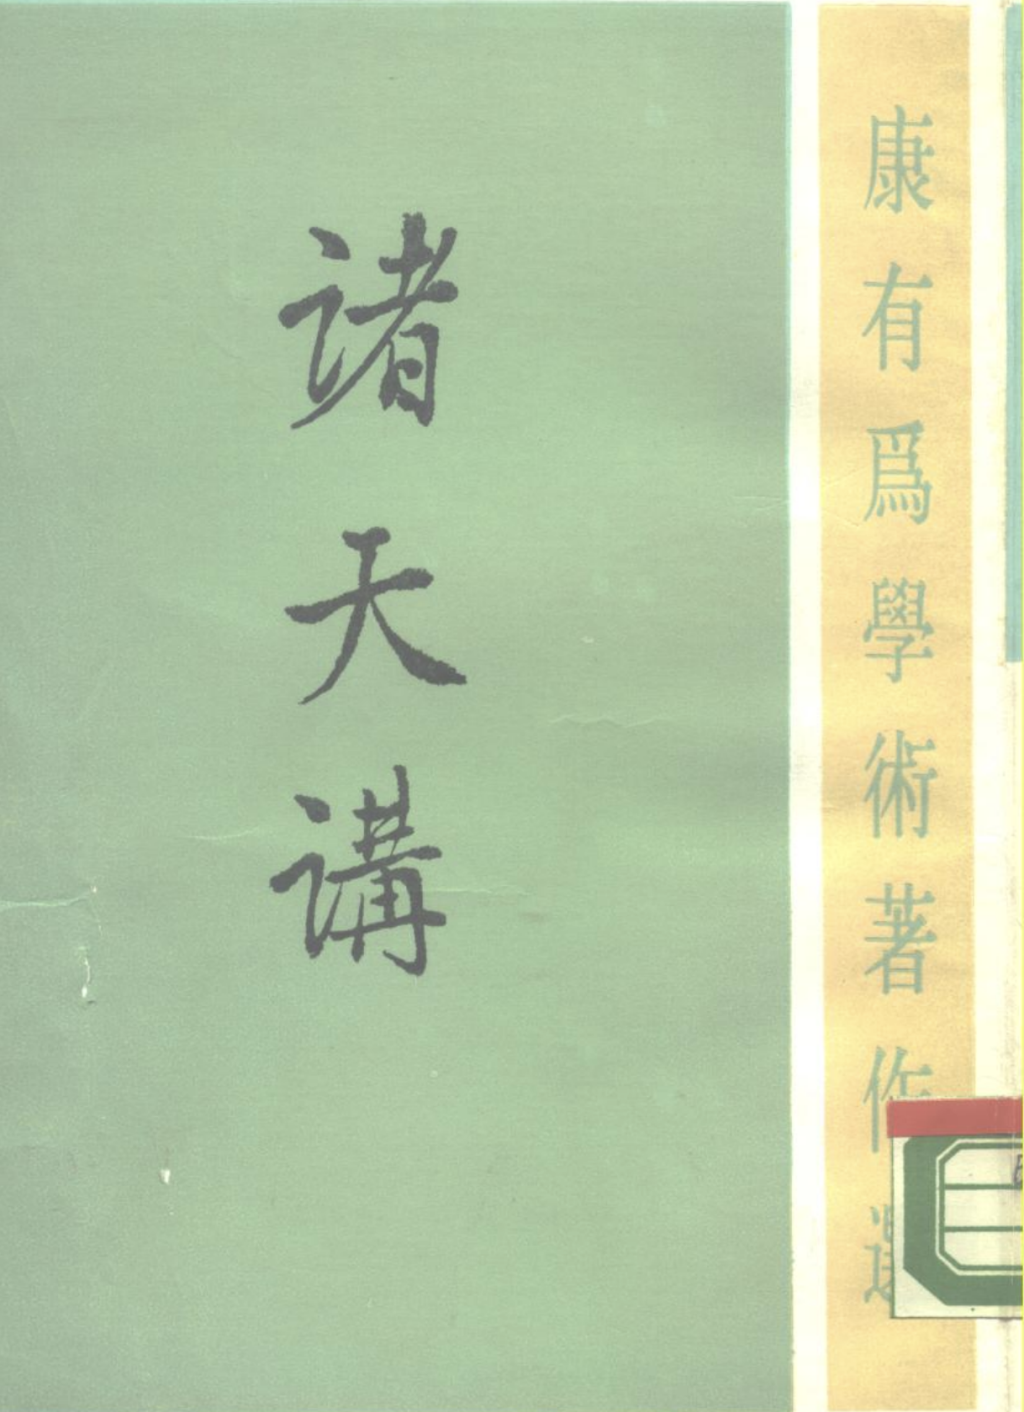 康有爲學術著作選
諸天講